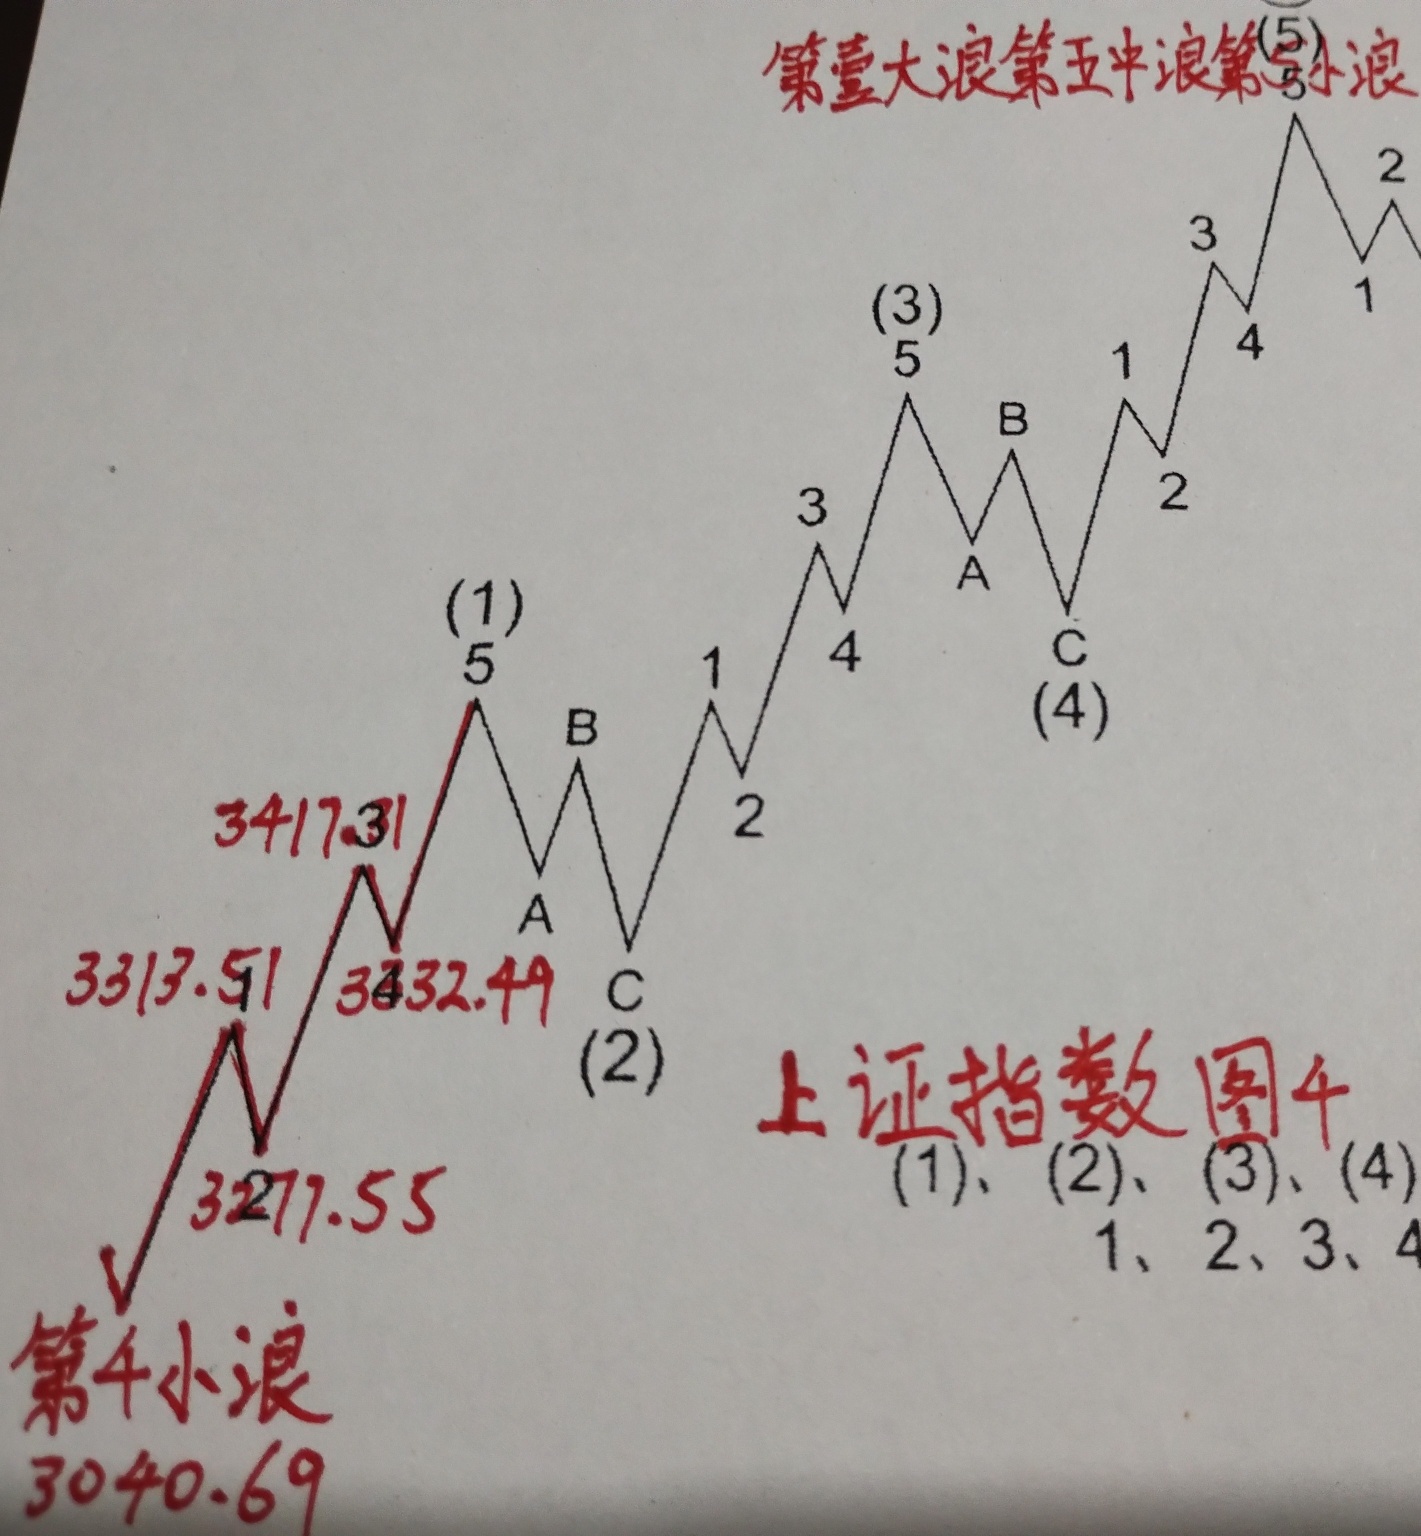 (5)
第壹大浪第五中浪第5小浪
5
2
3
1
(3)
5
4
1
B
2
3
A
(1)
5
1
4
C
(4)
B
2
3417.31
3
A
3313.51
1
3332.49
4
C
(2)
上证指数图4
(1)、 (2)、 (3)、 (4)
1、 2、 3、 4
3277.55
2
第4小浪
3040.69